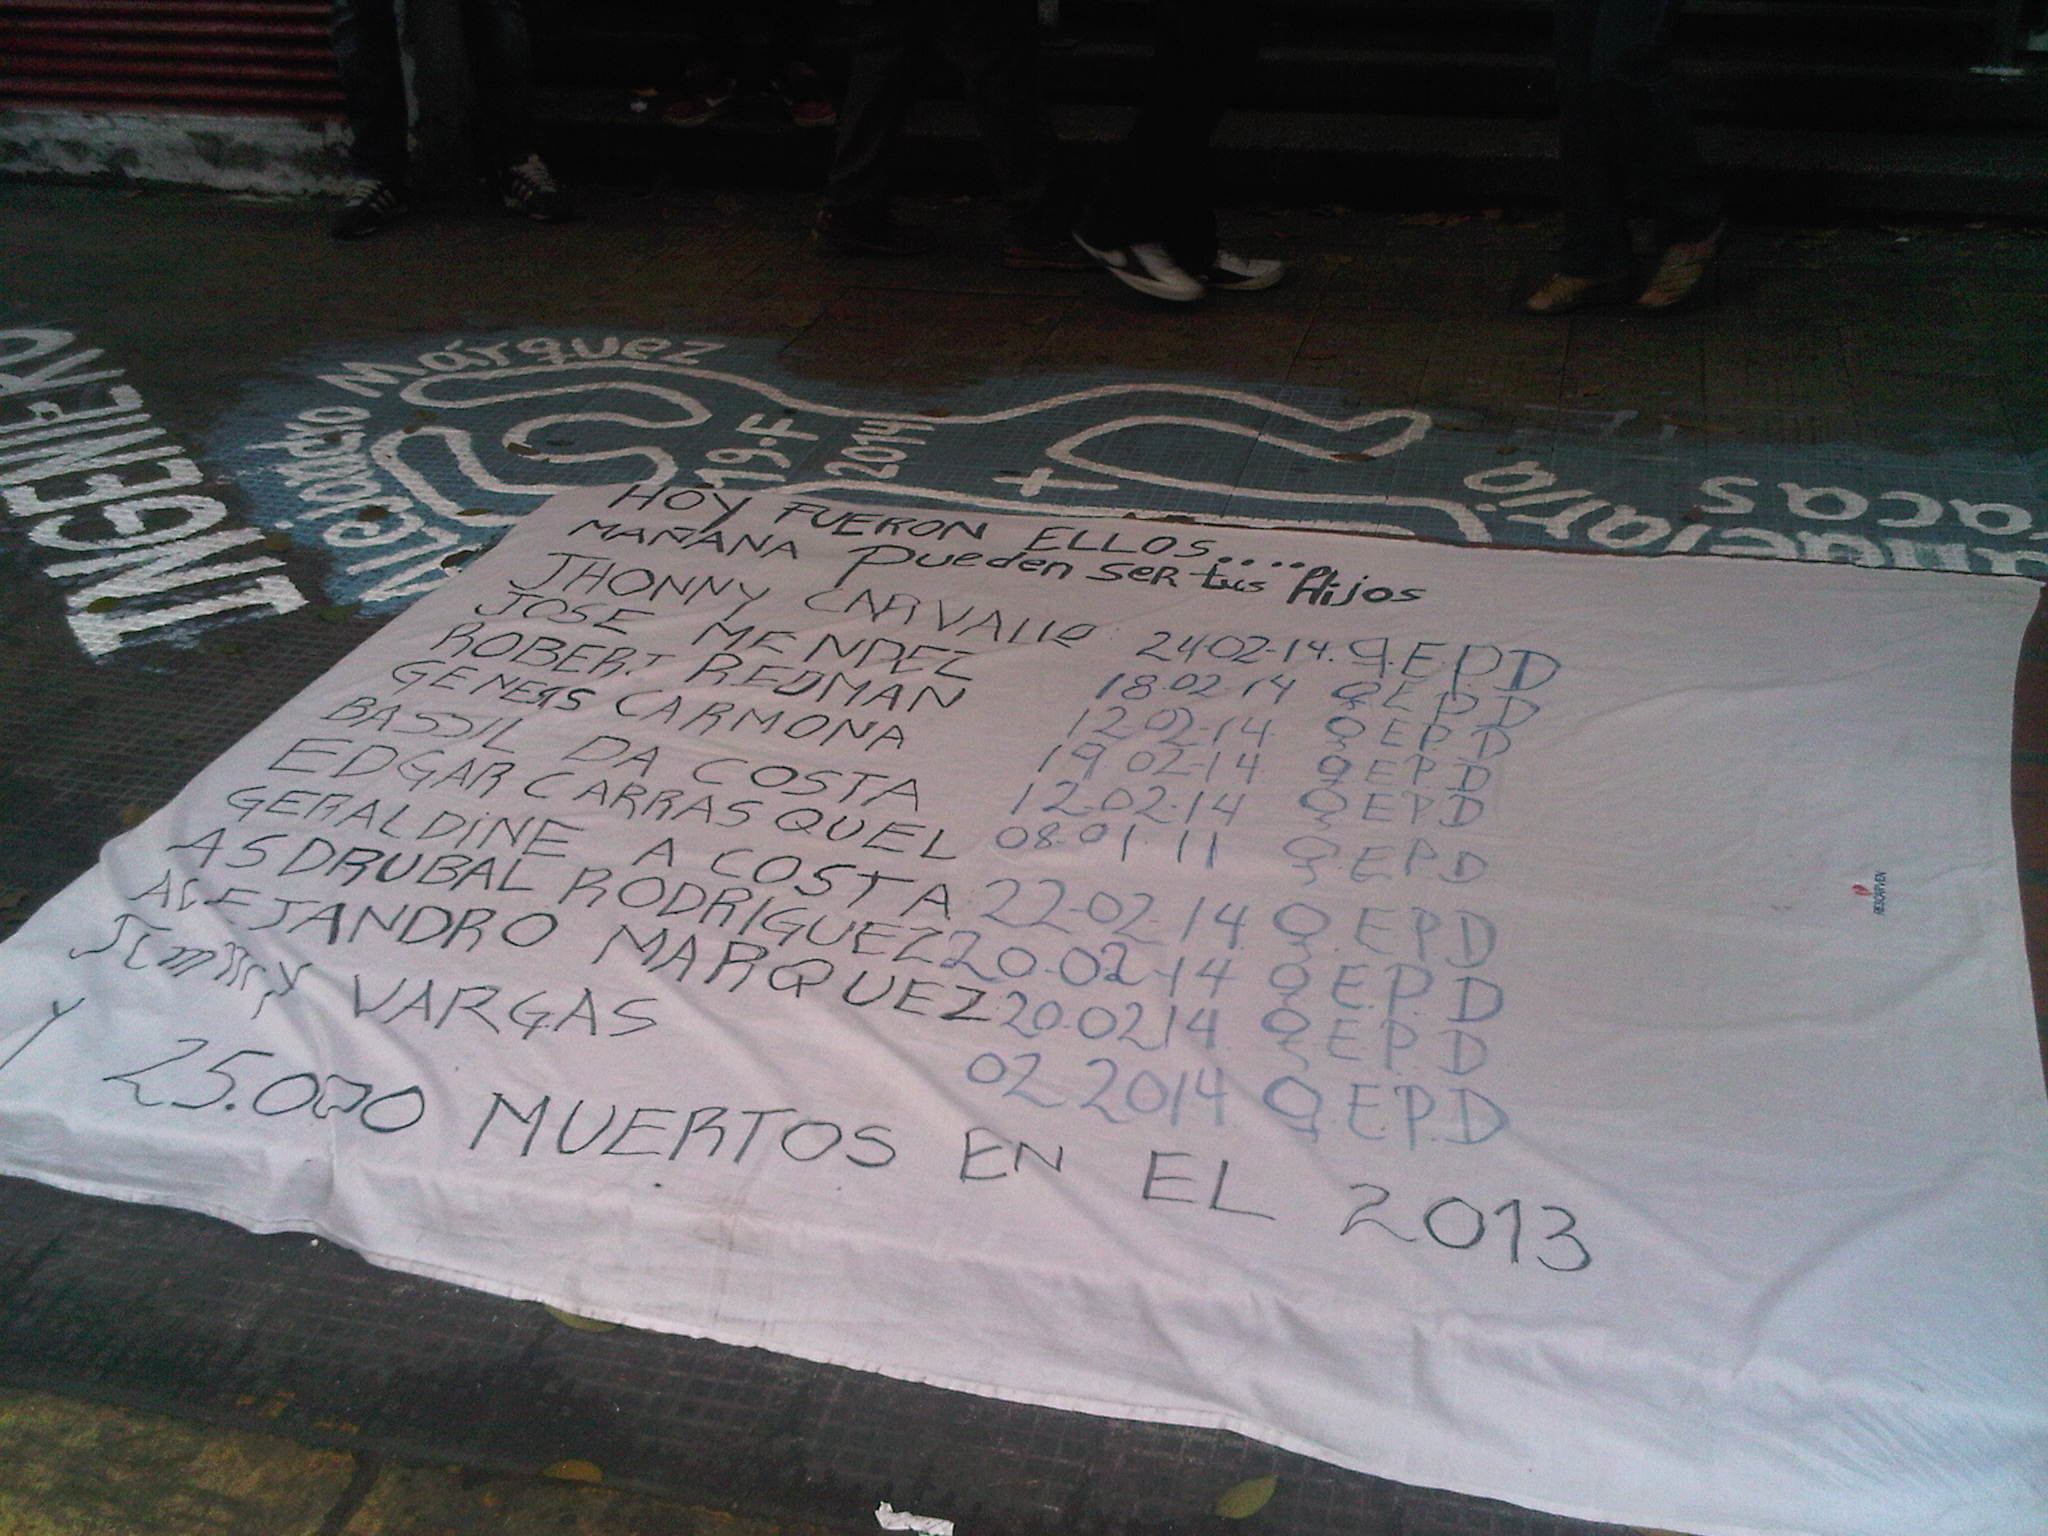 INGENIERO
Alejandro Márquez
19-F
2014
Candelaria
HOY FUERON ELLOS.....
MAÑANA Pueden SER tus Hijos
JHONNY CARVALLO: 24-02-14. Q.E.P.D
JOSE MENDEZ 18-02-14 Q E P D
ROBERT REDMAN 12-02-14 Q E P. D
GENESIS CARMONA 19-02-14 Q E P. D
BASSIL DA COSTA 12-02-14 Q E P. D
EDGAR CARRASQUEL 08-01-11 Q. E P D
GERALDINE A COSTA 22-02-14 Q. E P D
ASDRUBAL RODRIGUEZ 20-02-14 Q E. P. D
ALEJANDRO MARQUEZ 20-02 14 Q E. P. D
JIMMY VARGAS 02 2014 Q. E.P. D
Y 25.000 MUERTOS EN EL 2013
RESCARVEN